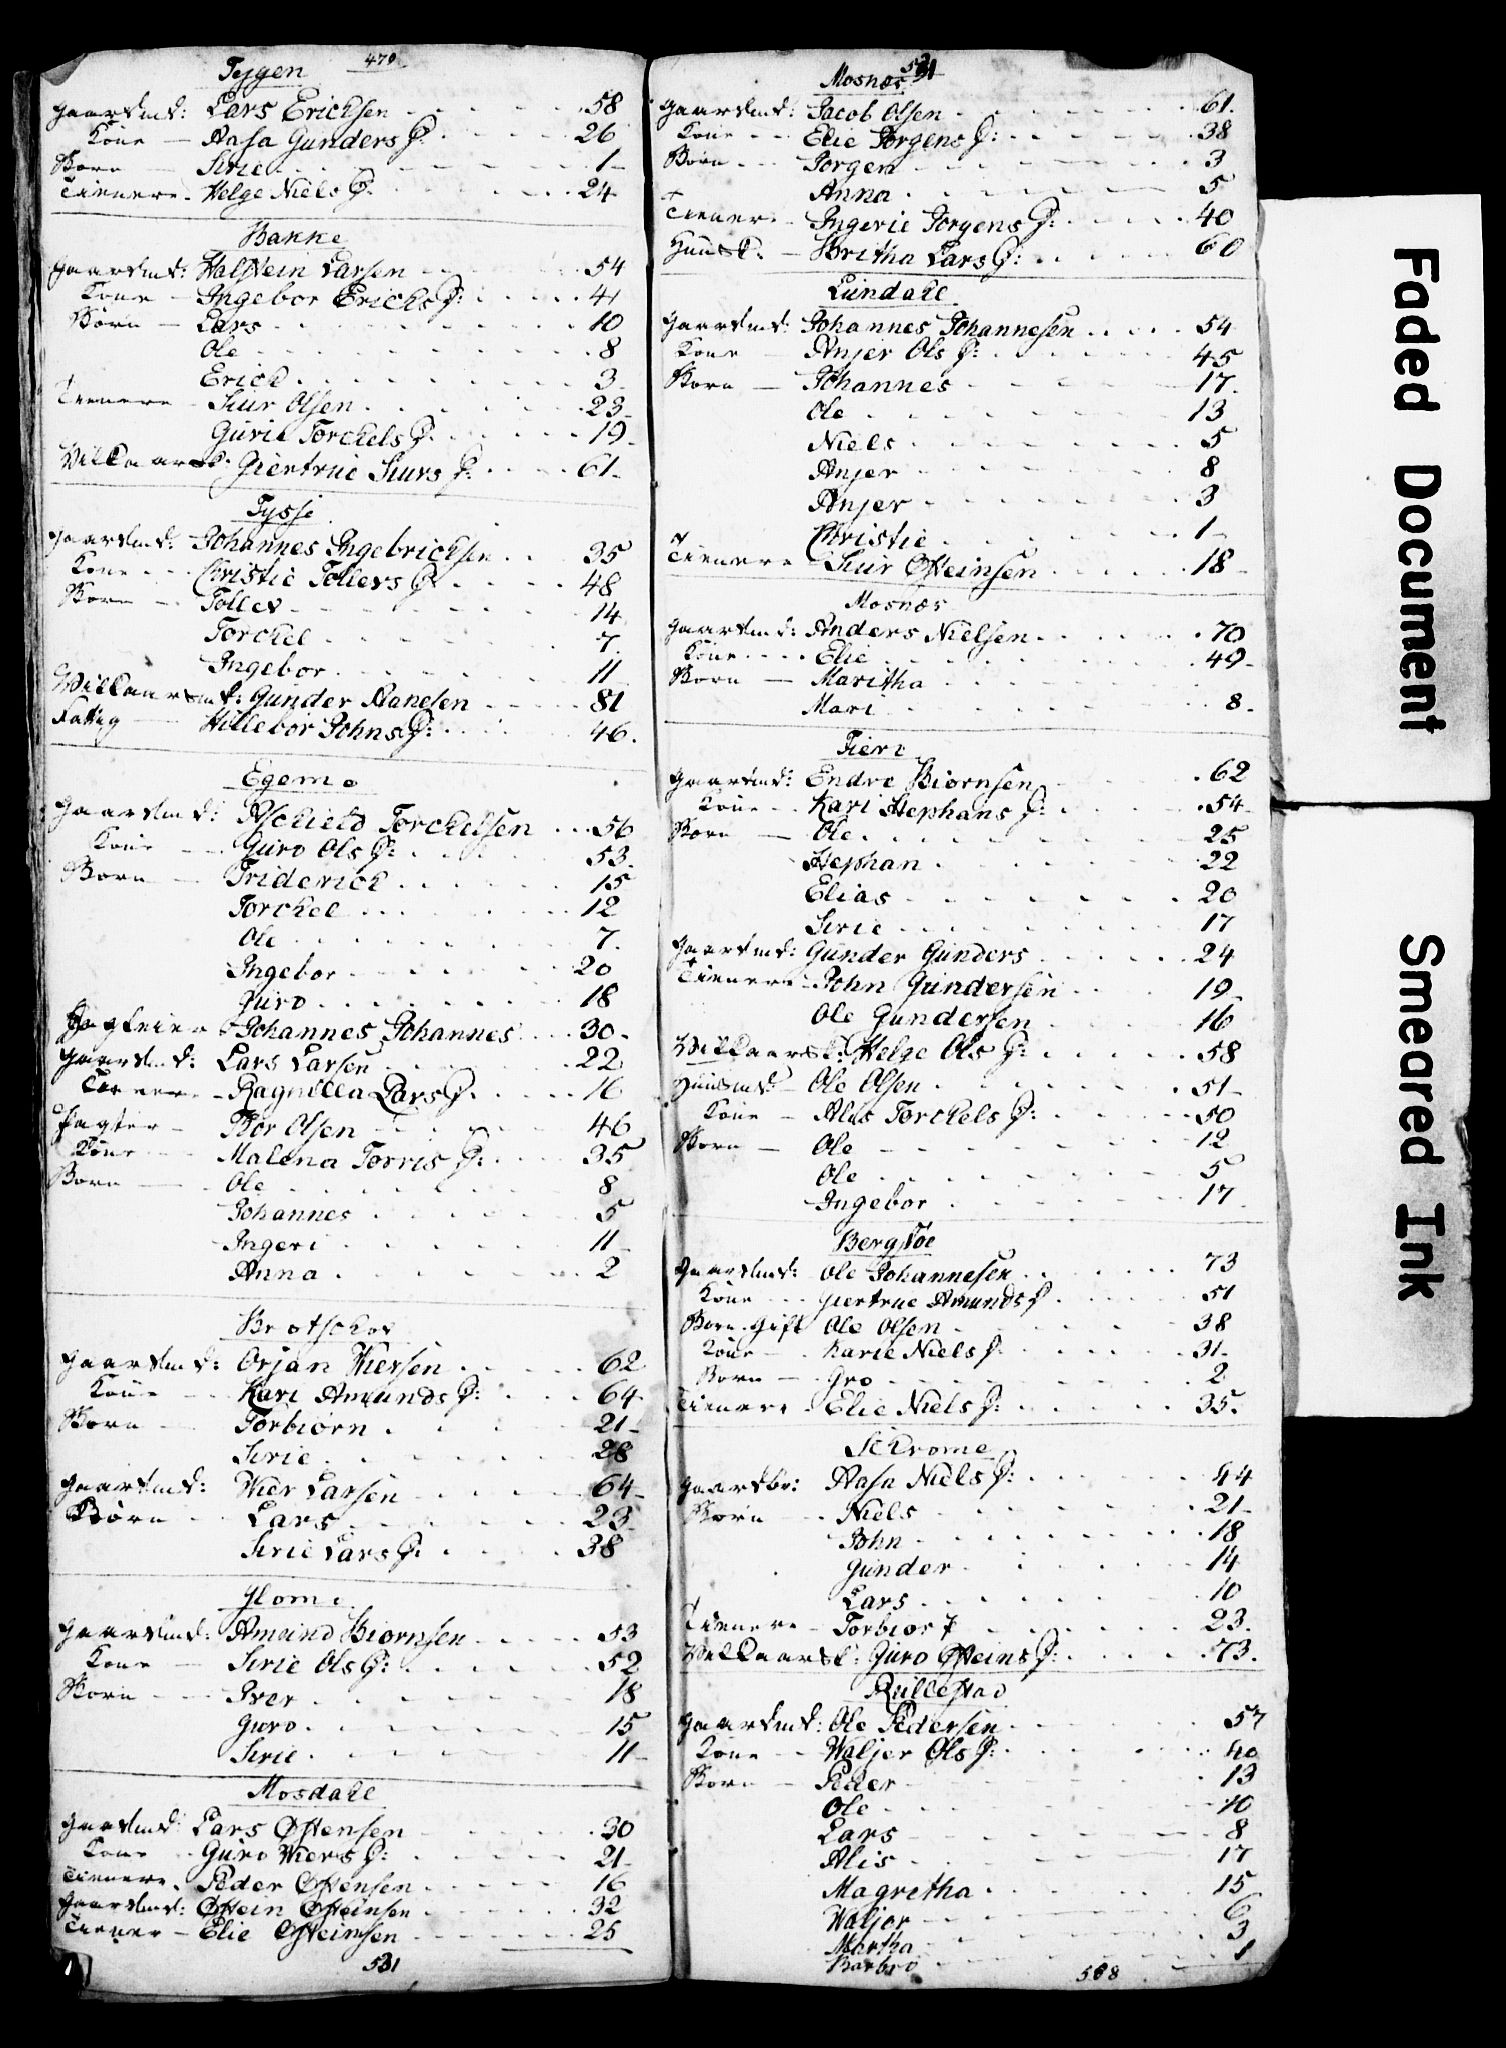 470
Tygen
Gaardmd: Lars Ericksen 58
Kone Aasa Gunders D. 26
Børn Sirie 1
Tienere Helge Niels D. 24
Bakke
Gaardmd: Halstein Larsen 54
Kone Ingebor Ericks D: 41
Børn Lars 10
Ole 8
Erick 3
Tienere Siur Olsen 23
Gurie Torckels D. 19
Vilkaarsk: Giertrue Siurs D. 61
Tysse
Gaardmd: Johannes Ingebricksen 35
Kone Christie Tollevs D 48
Børn Tollev 14
Torckel 7
Ingebor 11
Vilkaarsmd: Gunder Aanensen 81
Fattig Hillebor Johns D: 46
Egeme
Gaardmd: Aschield Torckelsen 56
Kone Guro Ols D: 53
Børn Friderick 15
Torckel 12
Ole 7
Ingebor 20
Guro 18
Johannes Johannes 30
Gaardmd: Lars Larsen 22
Tienere Ragnilla Lars D. 16
Pagter Thor Olsen 46
Kone Malena Torris D: 35
Børn Ole 8
Johannes 5
Ingeri 11
Anna 2
Bratschov
Gaardmd: Orjan Wiersen 62
Kone Kari Amunds D: 64
Børn Torbiørn 21
Sirie 28
Gaardmd: Wier Larsen 64
Børn Lars 23
Sirie Lars D. 38
Glome
Gaardmd: Amund Biørnsen 53
Kone Sirie Ols D: 52
Børn Iver 18
Guro 15
Sirie 11
Mosdale
Gaardmd: Lars Østensen 30
Kone Guro Wiers D: 21
Tienere Peder Østensen 16
Gaardmd: Østein Østeinsen 32
Tiener Elie Østeinsen 25
531
531
Mosnæs
Gaardmd: Jacob Olsen 61
Kone Elie Jørgens D: 38
Børn Jørgen 3
Anna 5
Tienere Ingerie Jørgens D: 40
Huusk. Britha Lars D: 60
Lundale
Gaardmd: Johannes Johannesen 54
Kone Anjer Ols D: 45
Børn Johannes 17
Ole 13
Niels 5
Anjer 8
Anjer 3
Christie 1
Tienere Siur Østeinsen 18
Mosnæs
Gaardmd: Anders Nielsen 70
Kone Elie 49
Børn Maritha
Mari 8
Fieri
Gaardmd: Endre Biørnsen 62
Kone Kari Stephans D: 54
Børn Ole 25
Stephan 22
Elias 20
Sirie 17
Gaardmd: Gunder Gunders 24
Tienere John Gundersen 19
Ole Gundersen 16
Vilkaarsk: Helge Ols D: 58
Huusmd: Ole Olsen 51
Kone Alis Torckels D: 50
Børn Ole 12
Ole 5
Ingebor 17
Bergstøe
Gaardmd: Ole Johannesen 73
Kone Giertrue Amunds D 51
Børn Gift Ole Olsen 38
Kone Karie Niels D. 31
Børn Gro 2
Tienere Elie Niels D. 35
Schrome
Gaardbr: Aasa Niels D: 44
Børn Niels 21
John 18
Gunder 14
Lars 10
Tienere Torbior 23
Vilkaarsk: Guro Østeins D: 73
Rullestad
Gaardmd: Ole Pedersen 57
Kone Waljer Ols D: 40
Børn Peder 13
Ole 10
Lars 8
Alis 17
Magretha 15
Waljor 6
Martha 3
Barbro 1
568
Faded Document
Smeared Ink